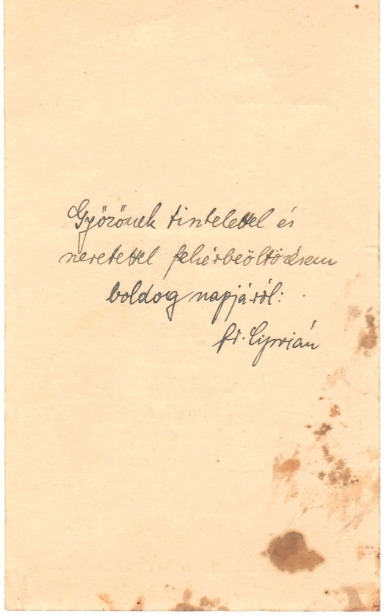 Győzőnek tisztelettel és
szeretettel fehérbeöltözésem
boldog napjáról:
fr. Ciprián